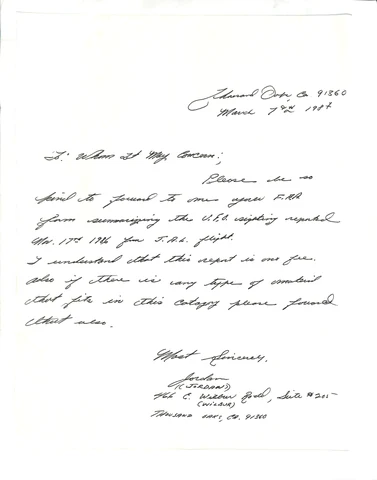 Thousand Oaks, Ca 91360
March 7 1987
To: Whom It May Concern;
Please be so
kind to forward to me your FAA
form summarizing the U.F.O. sighting reported
Nov. 17th 1986 from J.A.L. flight.
I understand that this report is no fee.
Also if there is any type of material
that fits in this catagry please forward
that also.
Most Sincerey,
Jordan
(JORDAN)
466 E. Wilbur Road, Suite #205
(WILBUR)
THOUSAND OAKS, CA. 91360